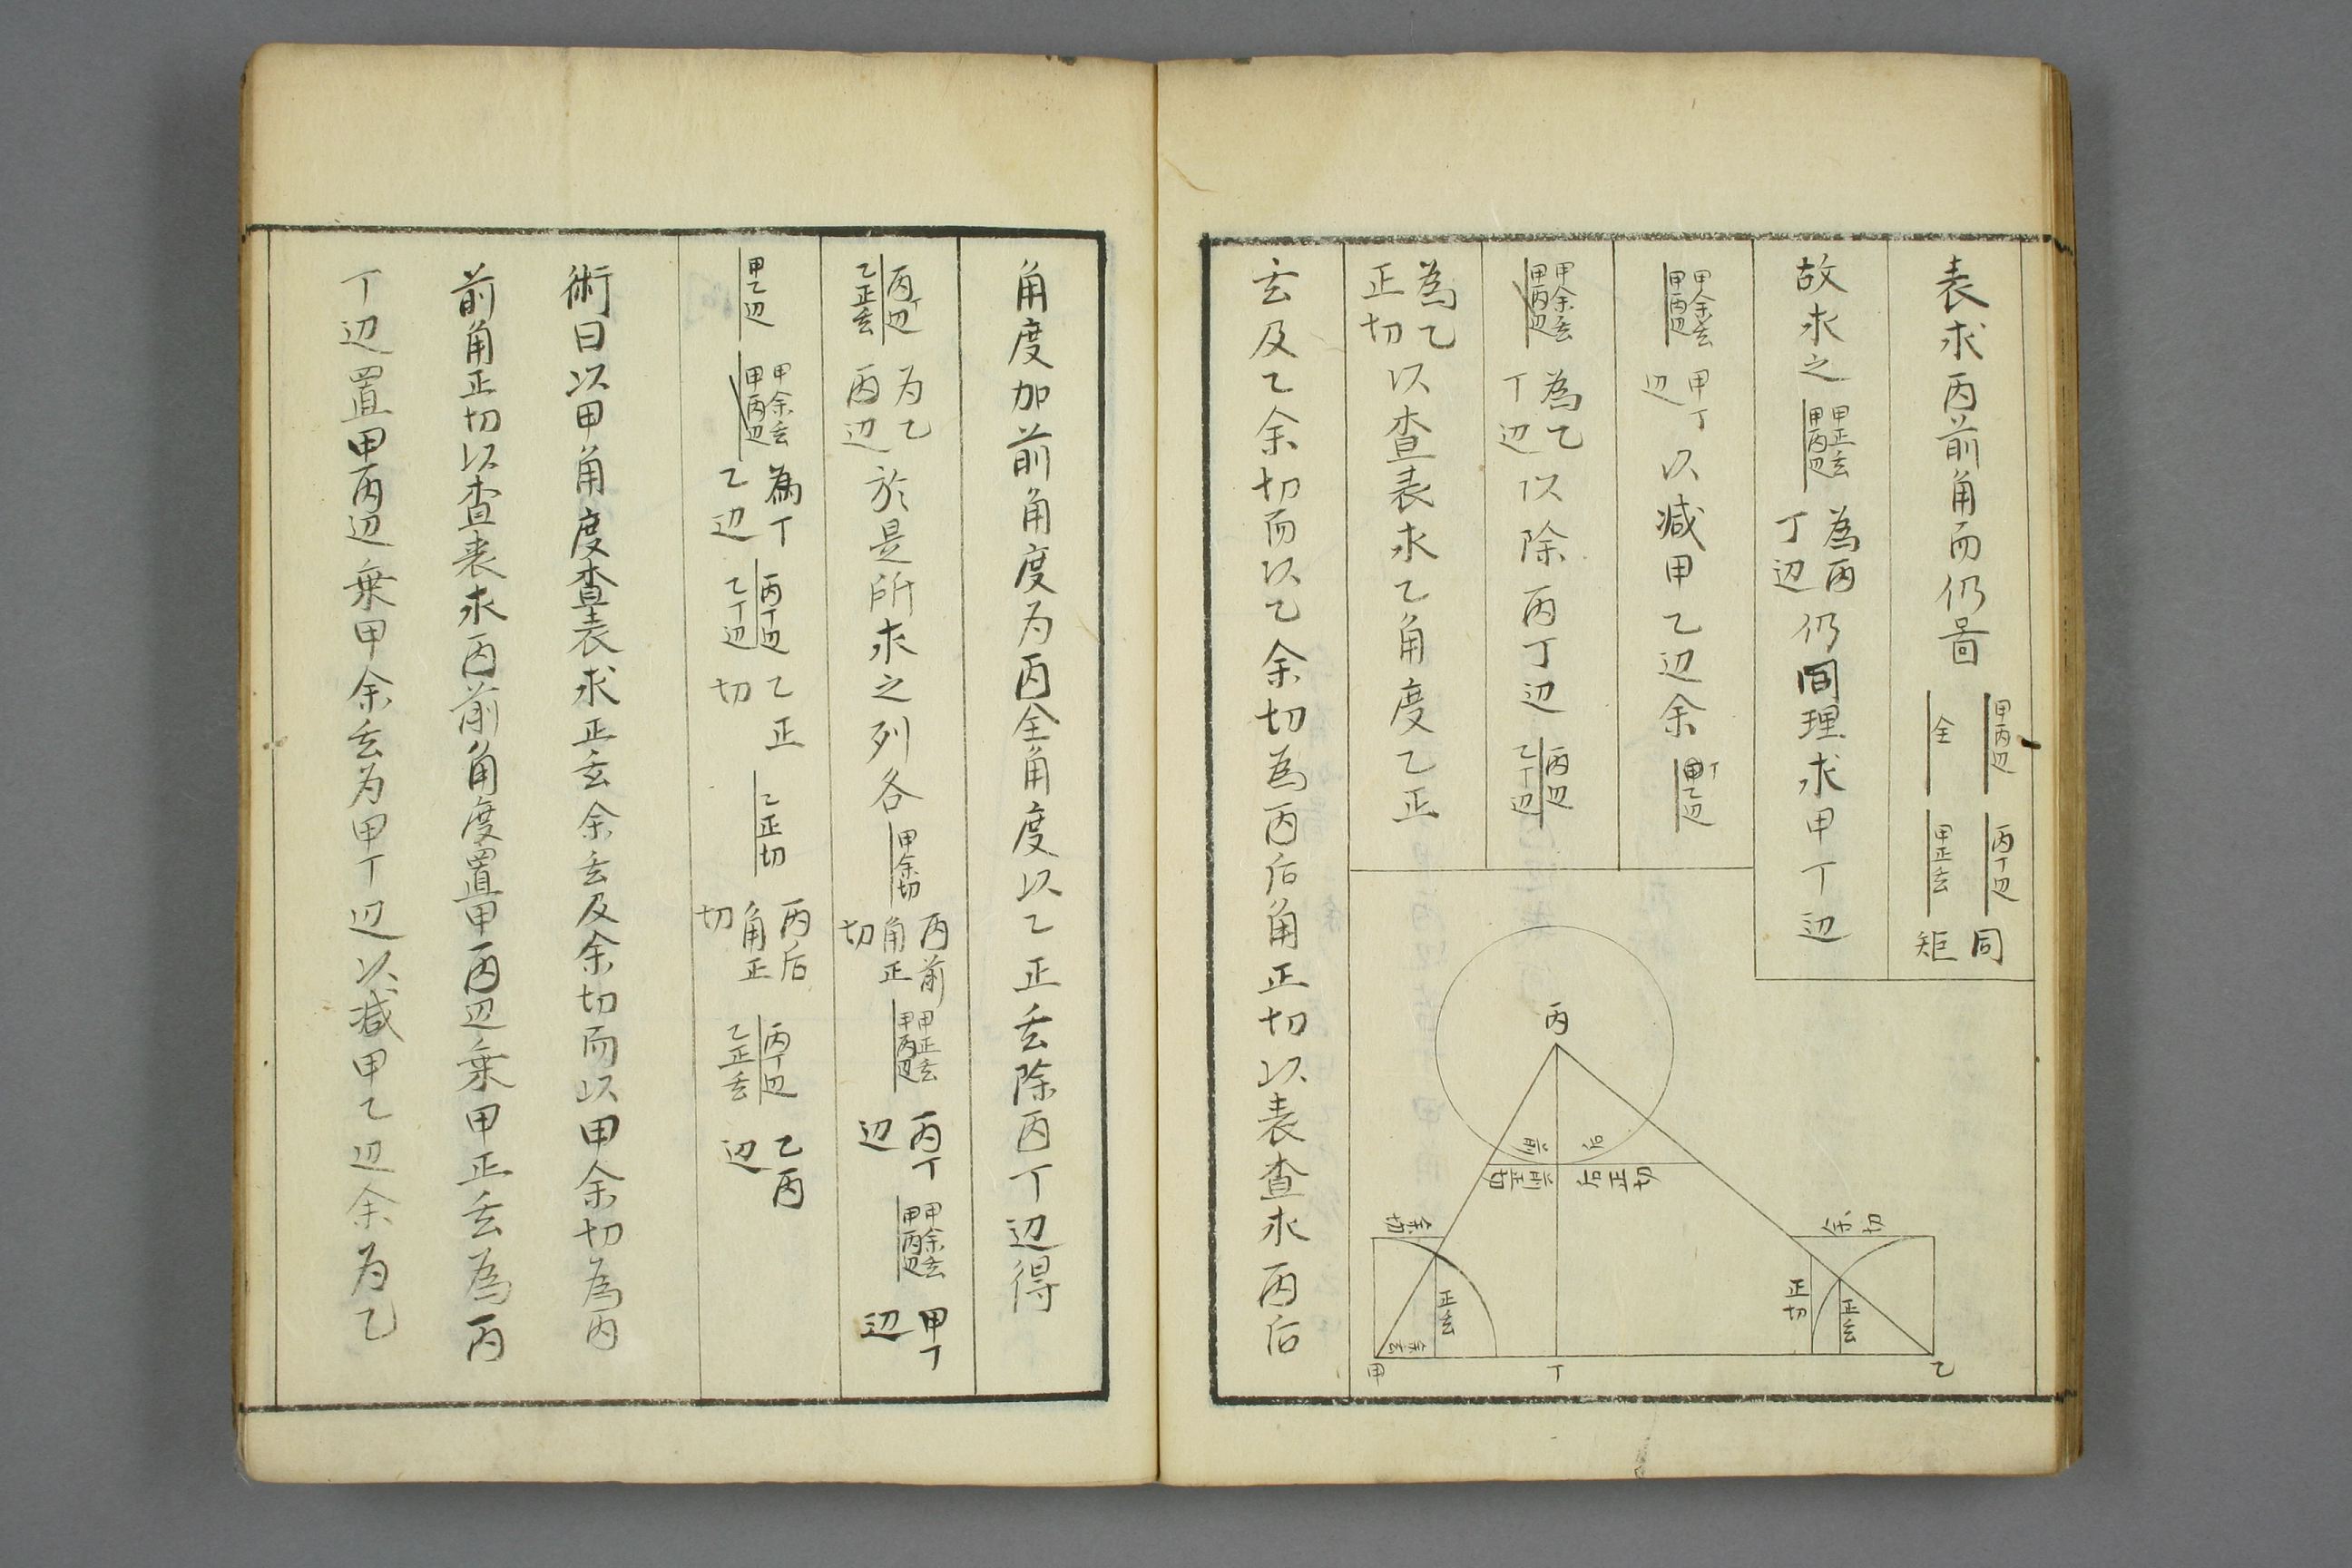 表求丙前角而仍畕 甲丙辺 全 丙丁辺 甲正玄 同矩
故求之 甲正玄 甲丙辺 為丙丁辺 仍同理求甲丁辺
甲余玄 甲丙辺 甲丁辺 以減甲乙辺余 丁 甲乙辺
甲余玄 甲丙辺 為乙丁辺 以除丙丁辺 丙丁辺 乙丁辺
為乙正切 以查表求乙角度乙正
玄及乙余切而以乙余切為丙后角正切以表查求丙后
丙
前 后
前正切 后正切
余切 余切
正玄 余玄 正切 正玄
甲 丁 乙
角度加前角度为丙全角度以乙正玄除丙丁辺得
丙丁辺 乙正玄 为乙丙辺 於是所求之列各 甲余切 丙前角正切 甲正玄 甲丙辺 丙丁辺 甲余玄 甲丙辺 甲丁辺
甲乙辺 甲余玄 甲丙辺 為丁乙辺 丙丁辺 乙丁辺 乙正切 乙正切 丙后角正切 丙丁辺 乙正玄 乙丙辺
術曰以甲角度查表求正玄余玄及余切而以甲余切為丙
前角正切以查表求丙前角度置甲丙辺乗甲正玄為丙
丁辺置甲丙辺乗甲余玄为甲丁辺以減甲乙辺余为乙